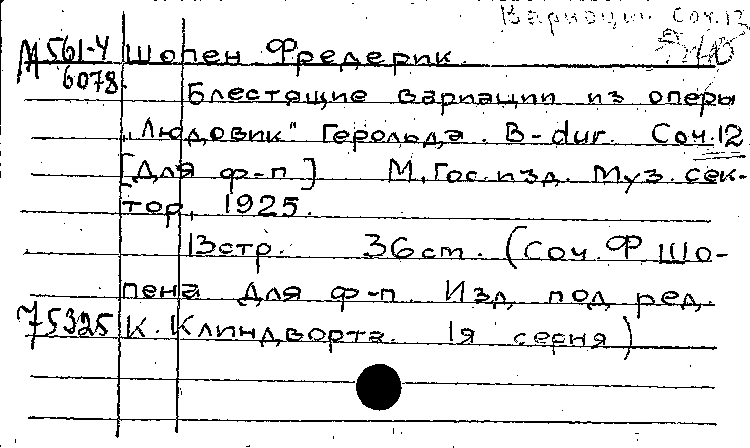 Вариации Соч.12
М 561-4 Шопен Фредерик.
6078
Блестящие вариации из оперы
„Людовик" Герольда. B-dur. Соч.12
[Для ф-п] М, Гос. изд. Муз. сек-
тор, 1925.
13стр. 36 ст. (Соч. Ф Шо-
пена для ф-п. Изд, под ред.
75325 К. Клиндворта. 1я серия)